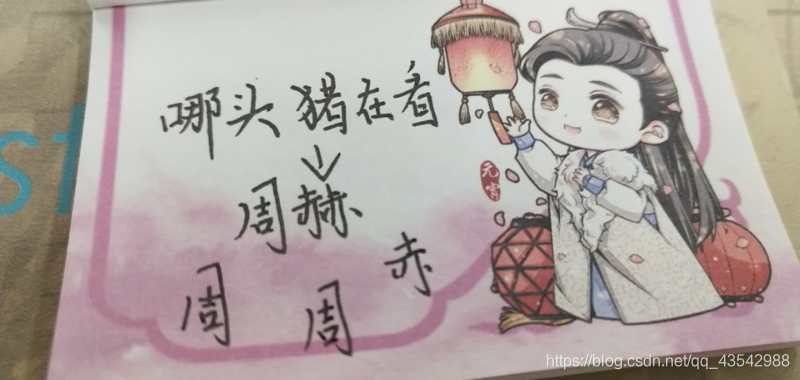 哪头猪在看
周赫
赤
周 周
元宵
https://blog.csdn.net/qq_43542988